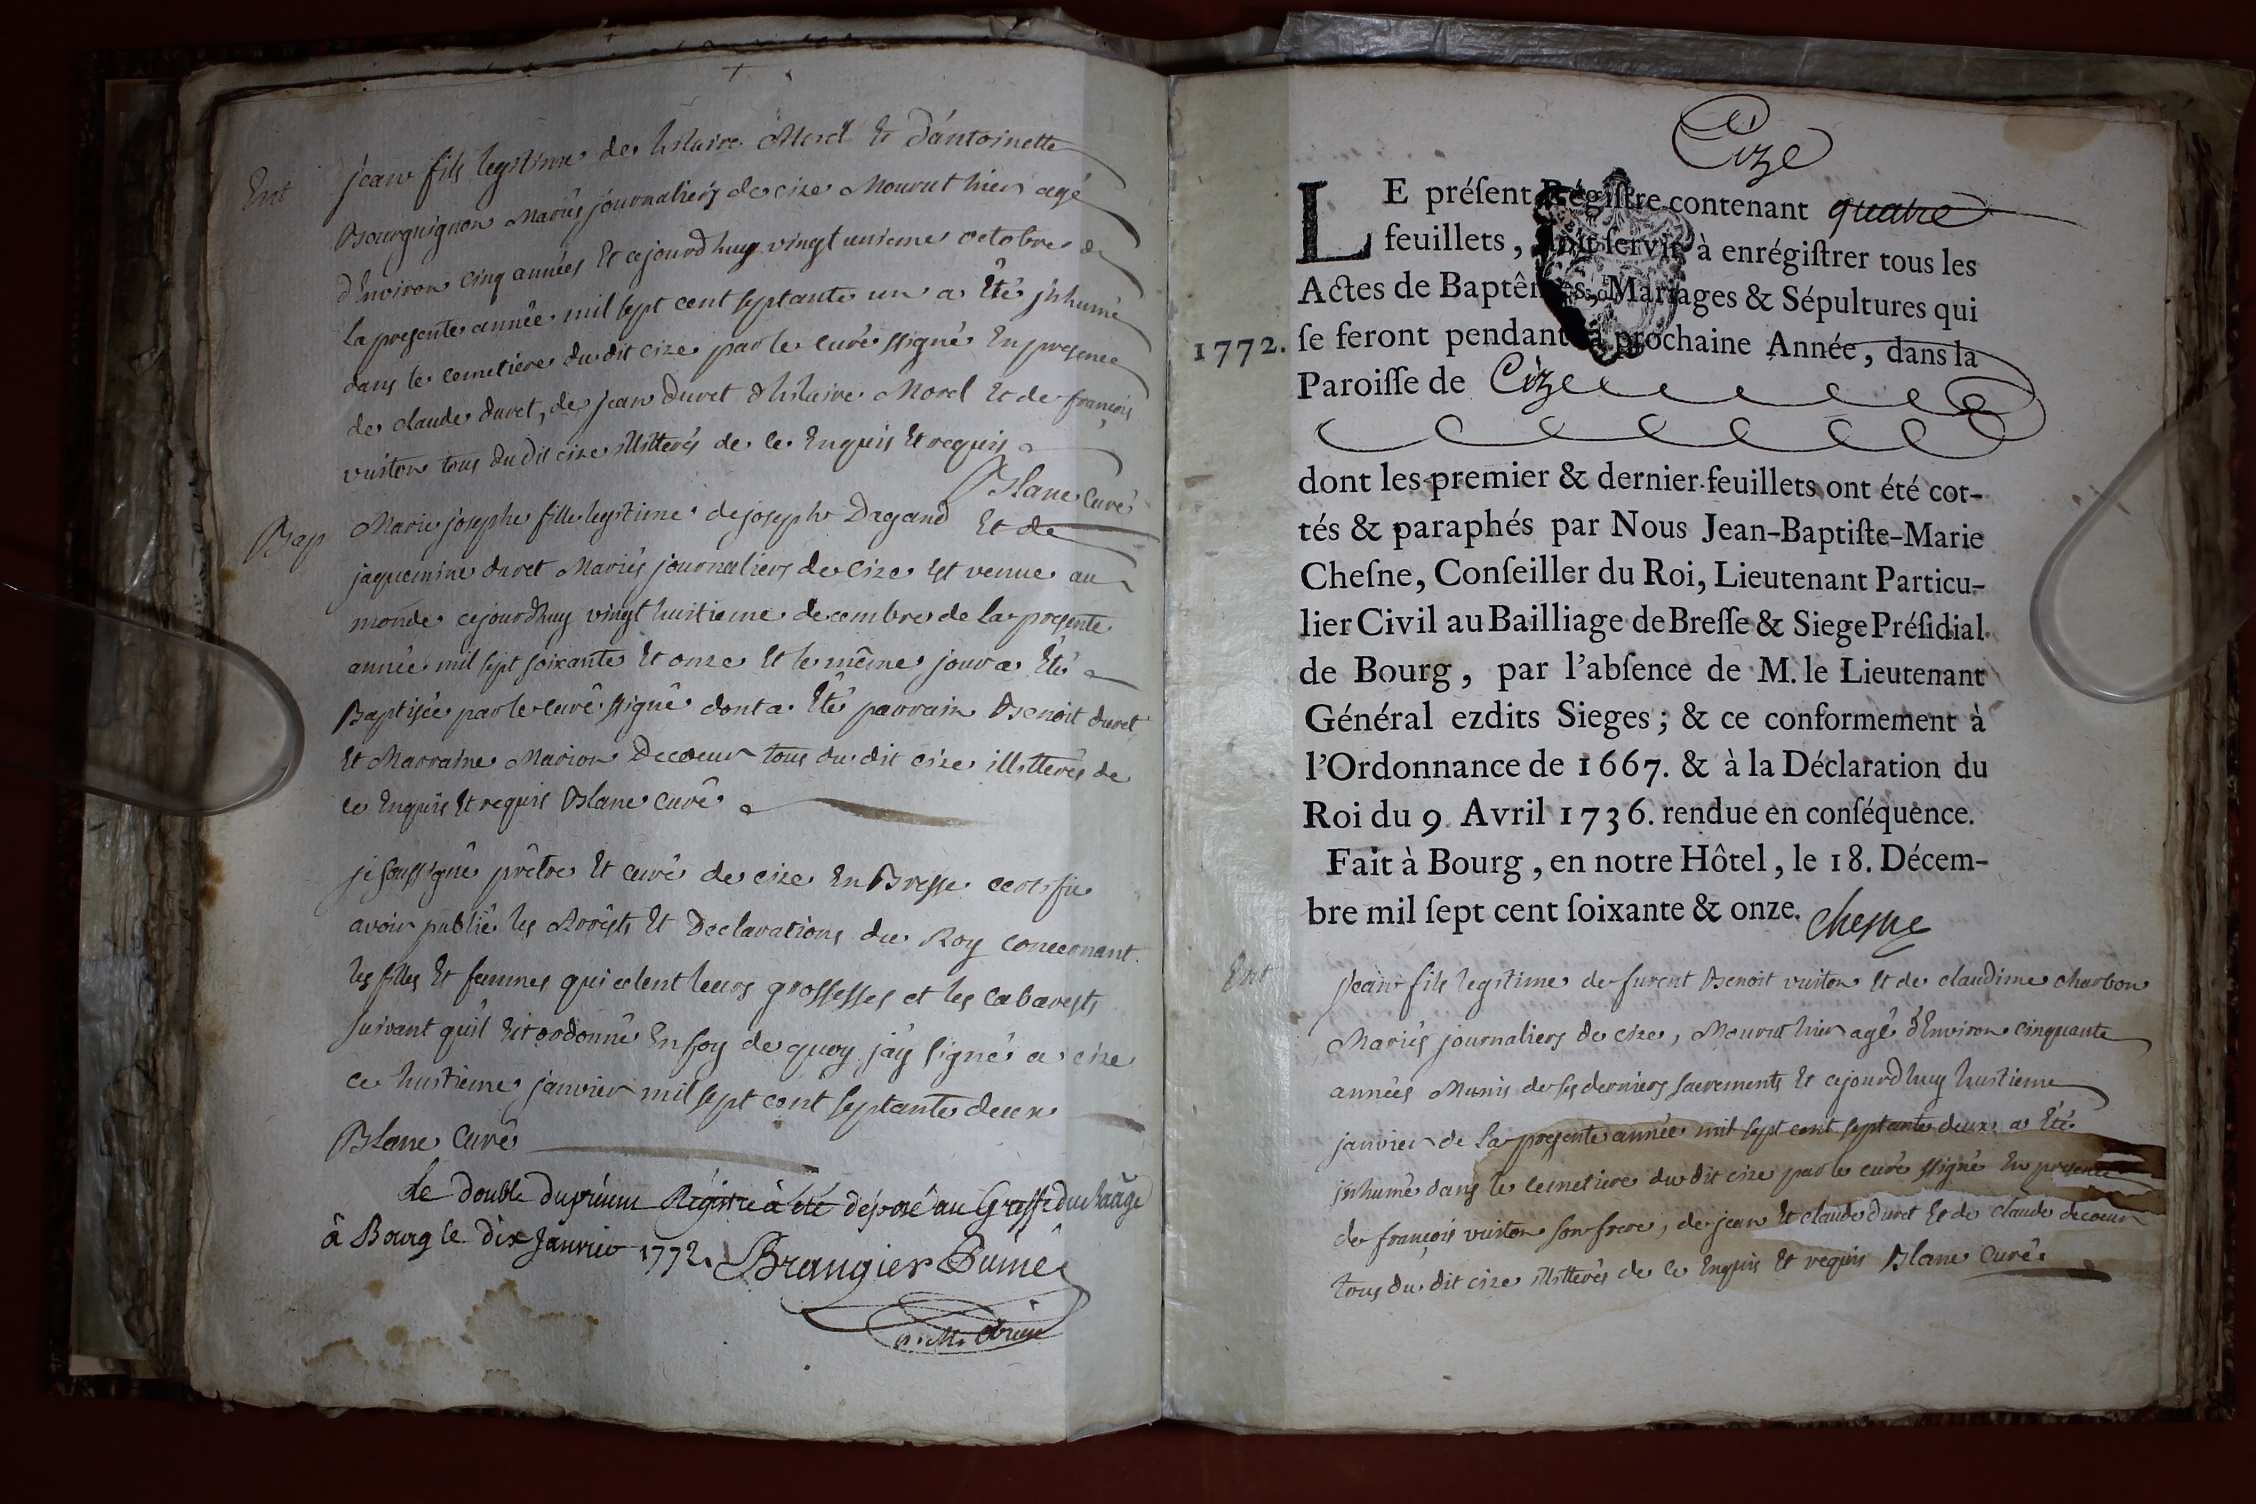 Ent
jean fils legitime de hilaire Morel Et d'antoinette
Bourguignon Mariés journaliers de cize Mourut hier agé
d'Environ cinq années Et cejourdhuy vingt unieme octobre de
la presente année mil sept cent septante un a Eté jnhumé
dans le cemetiére du dit cize par le curé ssigné En presence
de claude duret, de jean duret d'hilaire Morel Et de françois
vuiton tous du dit cize illitterés de ce Enquis Et requis
Blanc Curé
Bap
Marie josephe fille legitime de joseph Dagand Et de
jaquemine duret Mariés journaliers de cize Est venue au
monde cejourdhuy vingt huitieme decembre de la presente
année mil sept soixante Et onze Et le même jour a Eté
Baptisée par le curé ssigné dont a Eté parrain Benoit duret
Et Marraine Marion Decoeur tous du dit cize illitterés de
ce Enquis Et requis Blanc curé
je soussigné prêtre Et curé de cize En Bresse certifie
avoir publié les Arrêsts Et Declarations du Roy concernant
les filles Et femmes qui celent leurs grossesses et les cabarests
suivant quil Est ordonné En foy de quoy j'ay signé a cize
ce huitieme janvier mil sept cent septante deux
Blanc Curé
Le double du Registre à été déposé au Greffe
à Bourg le dix Janvier 1772.
Cize
LE préſent Régiſtre contenant quatre
feuillets, doit ſervir à enrégiſtrer tous les
Actes de Baptêmes, Mariages & Sépultures qui
1772. ſe feront pendant la prochaine Année, dans la
Paroiſſe de Cize
dont les premier & dernier feuillets ont été cot-
tés & paraphés par Nous Jean-Baptiſte-Marie
Cheſne, Conſeiller du Roi, Lieutenant Particu-
lier Civil au Bailliage de Breſſe & Siege Préſidial
de Bourg, par l'abſence de M. le Lieutenant
Général ezdits Sieges; & ce conformement à
l'Ordonnance de 1667. & à la Déclaration du
Roi du 9 Avril 1736. rendue en conſéquence.
Fait à Bourg, en notre Hôtel, le 18. Décem-
bre mil ſept cent ſoixante & onze.
Chesne
Ent
jean fils legitime de furent Benoit vuiton Et de claudine charbon
Mariés journaliers de cize, Mourut hier agé d'Environ cinquante
années Munis de ses derniers sacrements Et cejourdhuy huitieme
janvier de la presente année mil sept cent septante deux a Eté
jnhumé dans le cemetiere du dit cize par le curé ssigné En presence
de françois vuiton son frere, de jean Et claude duret Et de claude decoeur
tous du dit cize illitterés de ce Enquis Et requis Blanc Curé